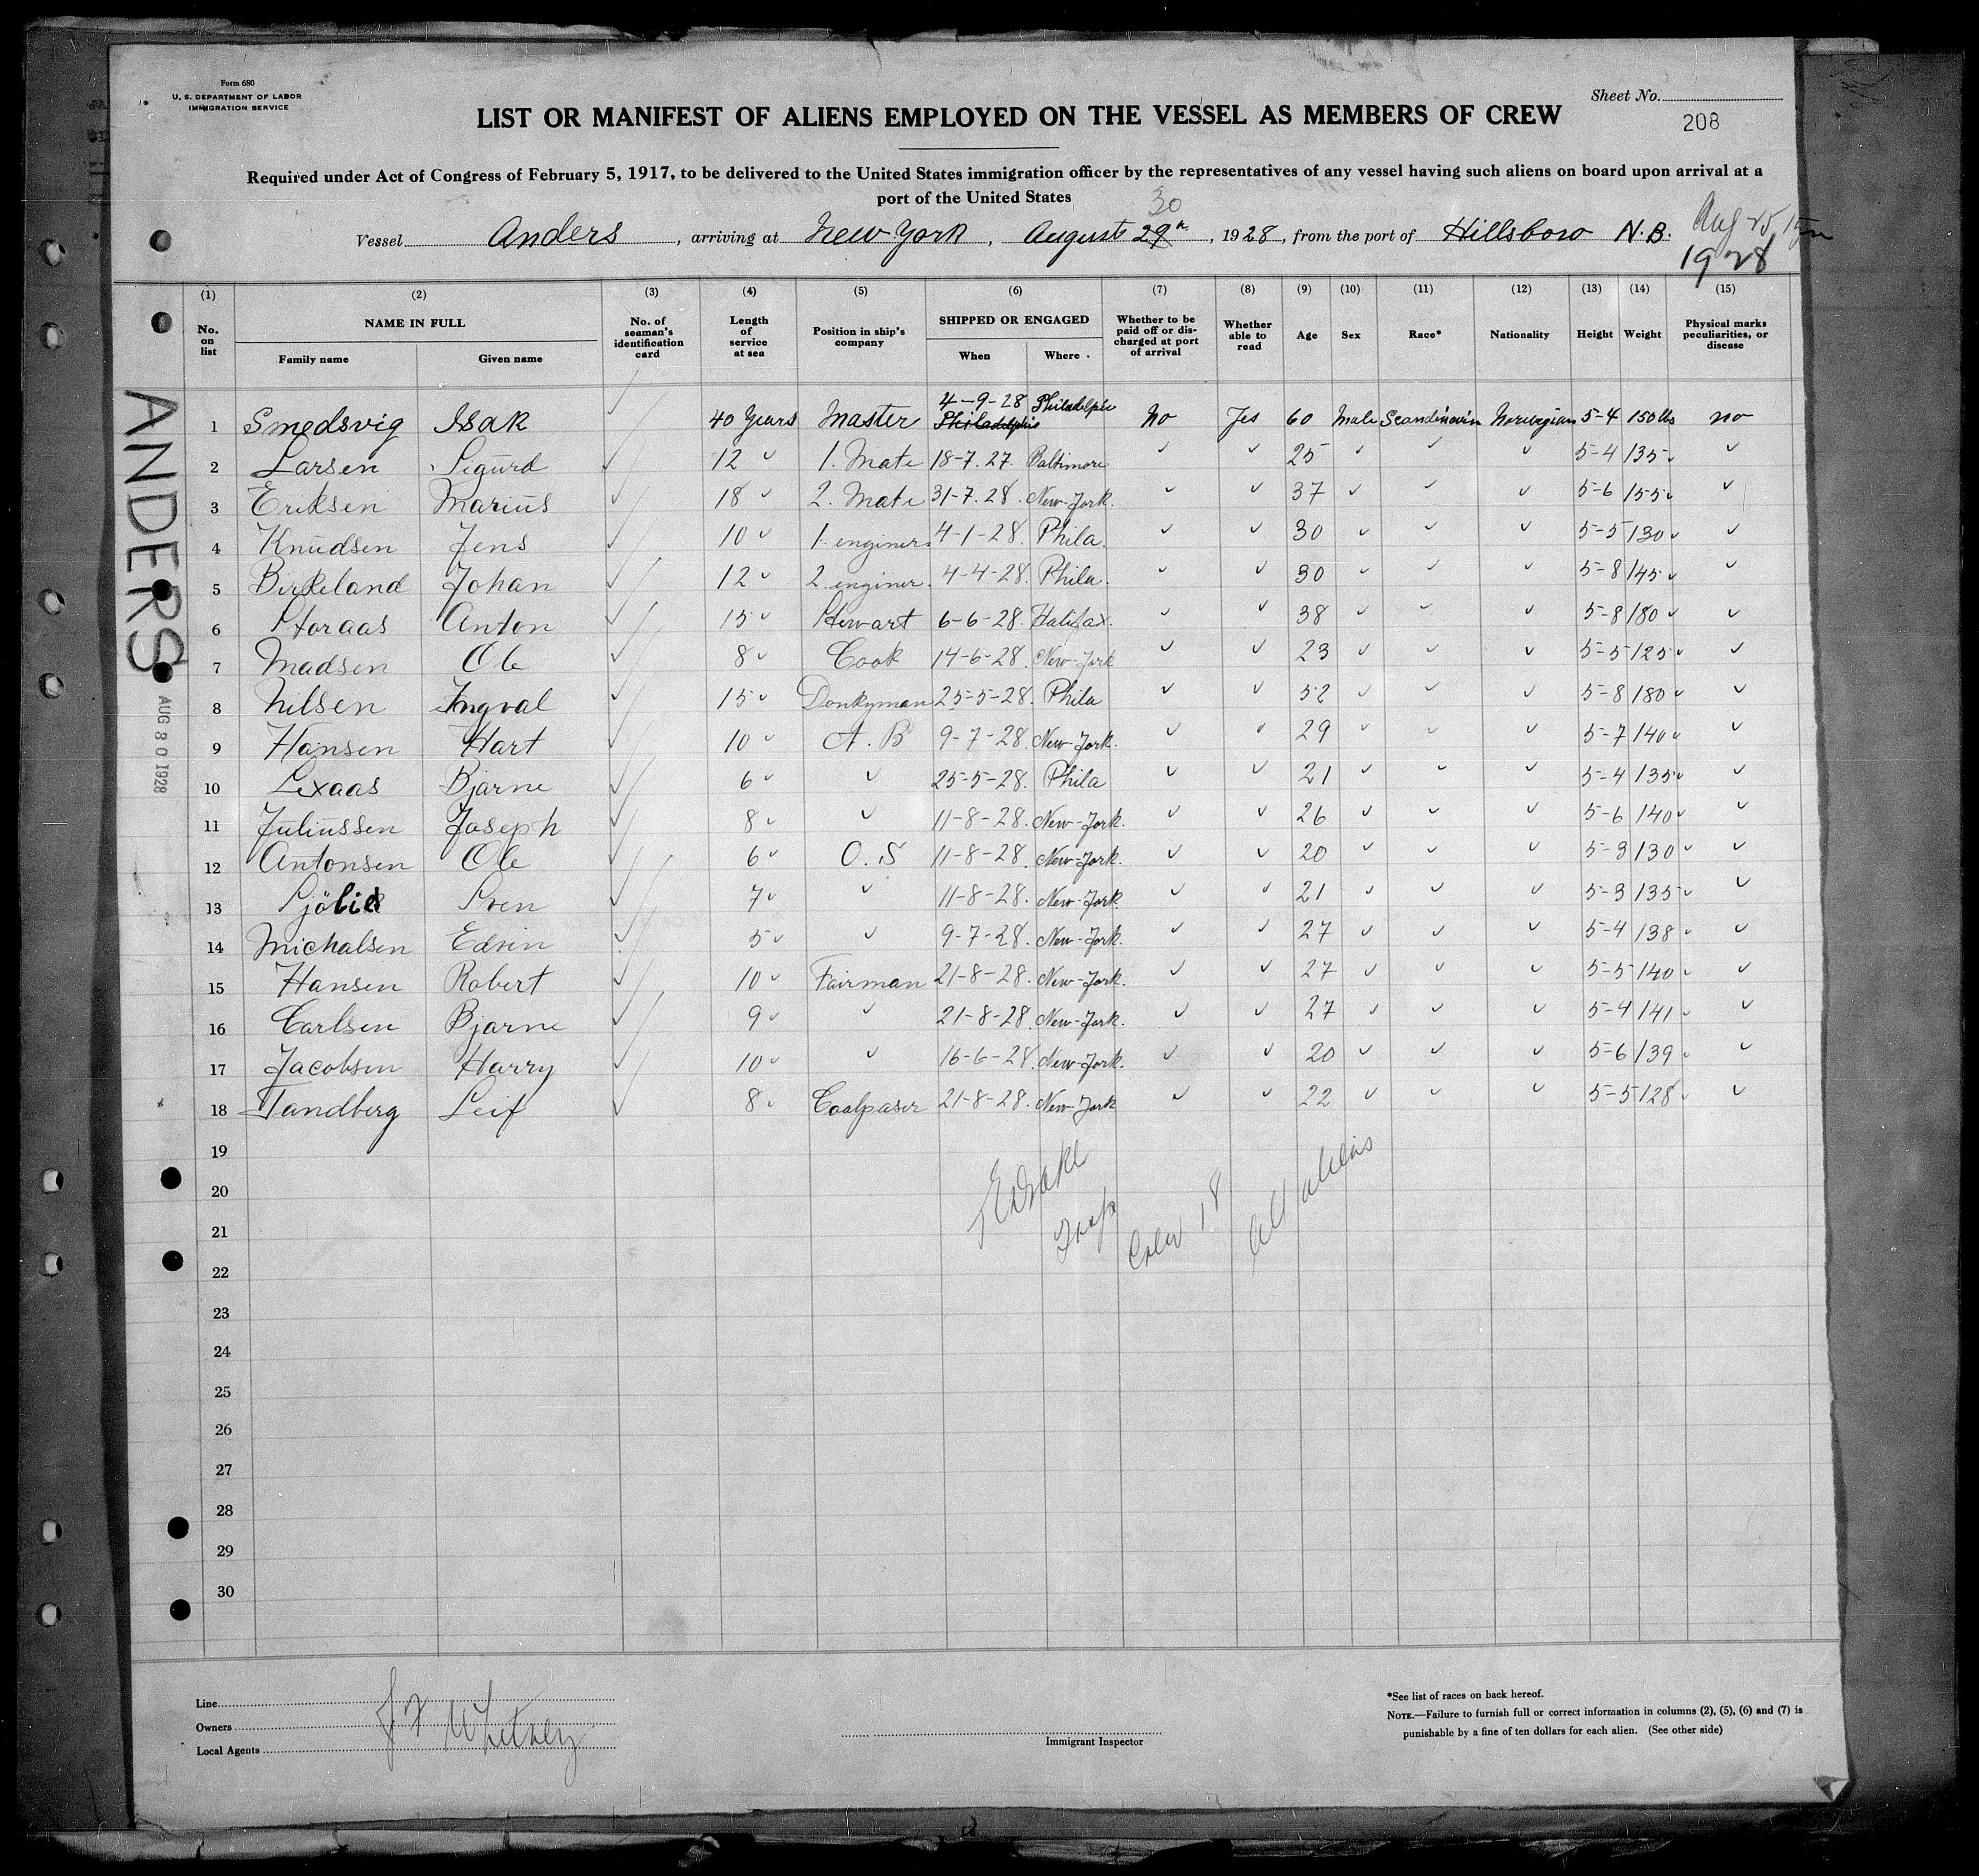 Form 680
U. S. DEPARTMENT OF LABOR
IMMIGRATION SERVICE
Sheet No.
208
LIST OR MANIFEST OF ALIENS EMPLOYED ON THE VESSEL AS MEMBERS OF CREW
Required under Act of Congress of February 5, 1917, to be delivered to the United States immigration officer by the representatives of any vessel having such aliens on board upon arrival at a
port of the United States
30
Vessel Anders, arriving at New York, August 29th, 1928, from the port of Hillsboro N.B. Aug 25,
1928
(1) (2) (3) (4) (5) (6) (7) (8) (9) (10) (11) (12) (13) (14) (15)
No. on list NAME IN FULL Family name Given name No. of seaman's identification card Length of service at sea Position in ship's company SHIPPED OR ENGAGED When Where Whether to be paid off or discharged at port of arrival Whether able to read Age Sex Race* Nationality Height Weight Physical marks peculiarities, or disease
1 Smedsvig Isak ✓ 40 Years Master 4-9-28 Philadelphia No Yes 60 Male Scandinavin Norwegian 5-4 150 lbs no
2 Larsen Sigurd ✓ 12 ✓ 1. Mate 18-7.27. Baltimore ✓ ✓ 25 ✓ ✓ ✓ 5-4 135 ✓ ✓
3 Eriksen Marius ✓ 18 ✓ 2. Mate 31-7.28. New-York. ✓ ✓ 37 ✓ ✓ ✓ 5-6 155 ✓ ✓
4 Knudsen Jens ✓ 10 ✓ 1. enginer. 4-1-28. Phila. ✓ ✓ 30 ✓ ✓ ✓ 5-5 130 ✓ ✓
5 Birkeland Johan ✓ 12 ✓ 2 enginer. 4-4-28. Phila. ✓ ✓ 30 ✓ ✓ ✓ 5-8 145 ✓ ✓
6 Storaas Anton ✓ 15 ✓ Stewart 6-6-28. Halifax. ✓ ✓ 38 ✓ ✓ ✓ 5-8 180 ✓ ✓
7 Madsen Ole ✓ 8 ✓ Cook 14-6-28. New-York ✓ ✓ 23 ✓ ✓ ✓ 5-5 125 ✓ ✓
8 Nilsen Ingval ✓ 15 ✓ Donkyman 25-5-28. Phila ✓ ✓ 52 ✓ ✓ ✓ 5-8 180 ✓ ✓
9 Hansen Hart ✓ 10 ✓ A. B 9-7-28. New-York. ✓ ✓ 29 ✓ ✓ ✓ 5-7 140 ✓ ✓
10 Lexaas Bjarne ✓ 6 ✓ ✓ 25-5-28. Phila ✓ ✓ 21 ✓ ✓ ✓ 5-4 135 ✓ ✓
11 Juliussen Joseph ✓ 8 ✓ ✓ 11-8-28. New-York. ✓ ✓ 26 ✓ ✓ ✓ 5-6 140 ✓ ✓
12 Antonsen Ole ✓ 6 ✓ O. S 11-8-28. New-York. ✓ ✓ 20 ✓ ✓ ✓ 5-3 130 ✓ ✓
13 Sven ✓ 7 ✓ ✓ 11-8-28. New-York. ✓ ✓ 21 ✓ ✓ ✓ 5-3 135 ✓ ✓
14 Michalsen Edvin ✓ 5 ✓ ✓ 9-7-28. New-York. ✓ ✓ 27 ✓ ✓ ✓ 5-4 138 ✓ ✓
15 Hansen Robert ✓ 10 ✓ Fairman 21-8-28. New-York. ✓ ✓ 27 ✓ ✓ ✓ 5-5 140 ✓ ✓
16 Carlsen Bjarne ✓ 9 ✓ ✓ 21-8-28. New-York. ✓ ✓ 27 ✓ ✓ ✓ 5-4 141 ✓ ✓
17 Jacobsen Harry ✓ 10 ✓ ✓ 16-6-28. New-York. ✓ ✓ 20 ✓ ✓ ✓ 5-6 139 ✓ ✓
18 Tandberg Leif ✓ 8 ✓ Coalpaser 21-8-28. New-York ✓ ✓ 22 ✓ ✓ ✓ 5-5 128 ✓ ✓
19
20
21
22
23
24
25
26
27
28
29
30
Crew 18
All aliens
ANDERS
AUG 30 1928
Line
Owners
Local Agents
J F Whitney
Immigrant Inspector
*See list of races on back hereof.
NOTE.—Failure to furnish full or correct information in columns (2), (5), (6) and (7) is
punishable by a fine of ten dollars for each alien. (See other side)